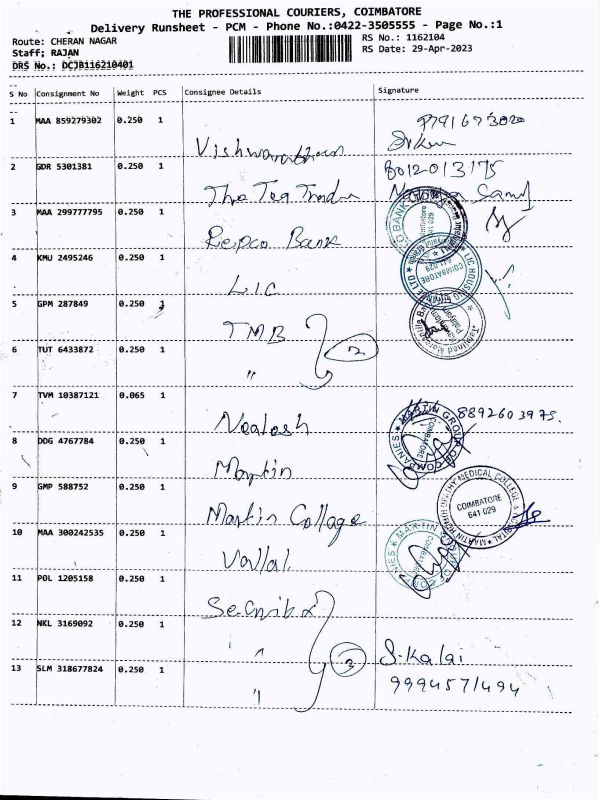 THE PROFESSIONAL COURIERS, COIMBATORE
Delivery Runsheet - PCM - Phone No.:0422-3505555 - Page No.:1
Route: CHERAN NAGAR
RS No.: 1162104
Staff; RAJAN
RS Date: 29-Apr-2023
DRS No.: DCJB116210401
S No Consignment No Weight PCS Consignee Details Signature
1 MAA 859279302 0.250 1
2 GDR 5301381 0.250 1 The Tea Trade 8012013175
3 MAA 299777795 0.250 1 Repco Bank
4 KMU 2495246 0.250 1 LIC
5 GPM 287849 0.250 1 TMB
6 TUT 6433872 0.250 1 " 2
7 TVM 10387121 0.065 1 8892603975.
8 DDG 4767784 0.250 1 Martin
MARTIN GROUP OF COMPANIES
COIMBATORE
9 GMP 588752 0.250 1 Martin Collage
MARTIN HOMEOPATHY MEDICAL COLLEGE & HOSPITAL
COIMBATORE
641 029
10 MAA 300242535 0.250 1
11 POL 1205158 0.250 1
12 NKL 3169092 0.250 1 " S. Kalai
13 SLM 318677824 0.250 1 " 3 9994571494